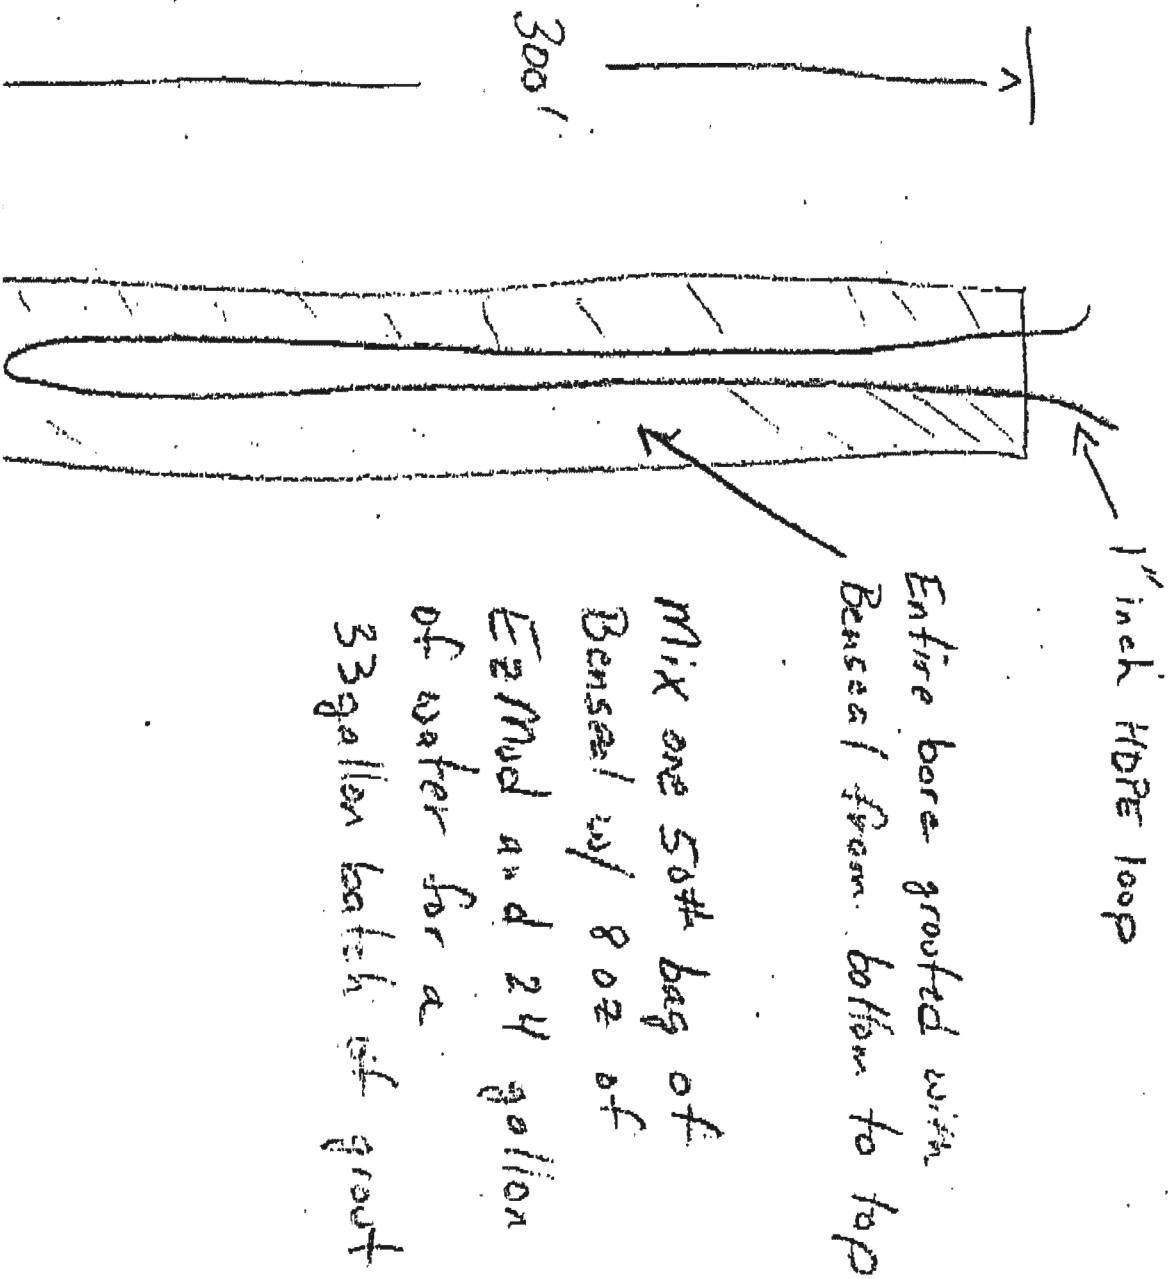 300'
1" inch HDPE loop
Entire bore grouted with
Benseal from bottom to top
Mix one 50# bag of
Benseal w/ 8 oz of
EZ Mud and 24 gallon
of water for a
33 gallon batch of grout